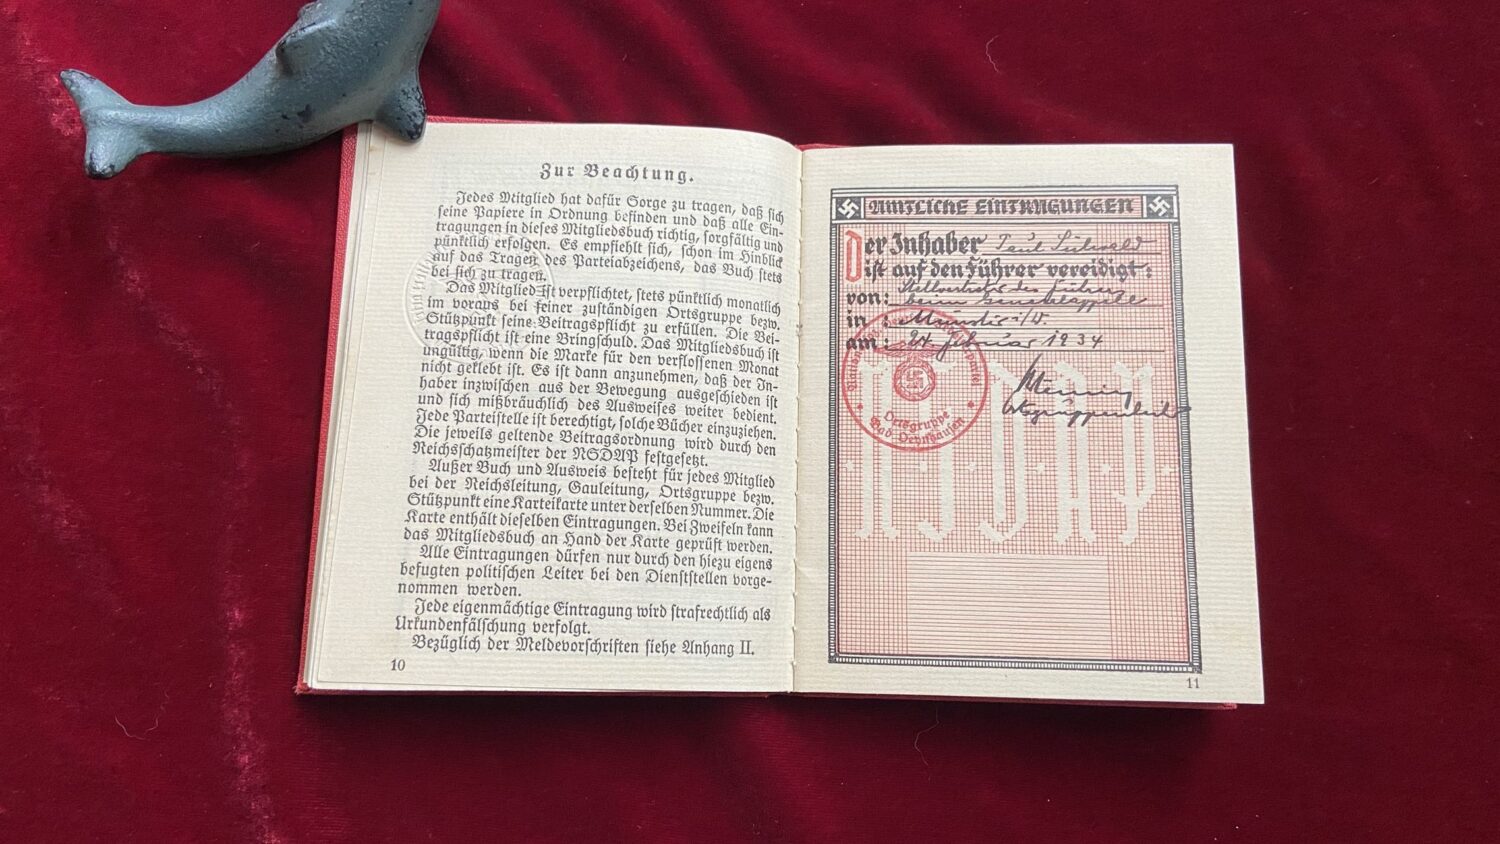 Zur Beachtung.
Jedes Mitglied hat dafür Sorge zu tragen, daß sich
seine Papiere in Ordnung befinden und daß alle Ein-
tragungen in dieses Mitgliedsbuch richtig, sorgfältig und
pünktlich erfolgen. Es empfiehlt sich, schon im Hinblick
auf das Tragen des Parteiabzeichens, das Buch stets
bei sich zu tragen.
Das Mitglied ist verpflichtet, stets pünktlich monatlich
im voraus bei seiner zuständigen Ortsgruppe bezw.
Stützpunkt seine Beitragspflicht zu erfüllen. Die Bei-
tragspflicht ist eine Bringschuld. Das Mitgliedsbuch ist
ungültig, wenn die Marke für den verflossenen Monat
nicht geklebt ist. Es ist dann anzunehmen, daß der In-
haber inzwischen aus der Bewegung ausgeschieden ist
und sich mißbräuchlich des Ausweises weiter bedient.
Jede Parteistelle ist berechtigt, solche Bücher einzuziehen.
Die jeweils geltende Beitragsordnung wird durch den
Reichsschatzmeister der NSDAP festgesetzt.
Außer Buch und Ausweis besteht für jedes Mitglied
bei der Reichsleitung, Gauleitung, Ortsgruppe bezw.
Stützpunkt eine Karteikarte unter derselben Nummer. Die
Karte enthält dieselben Eintragungen. Bei Zweifeln kann
das Mitgliedsbuch an Hand der Karte geprüft werden.
Alle Eintragungen dürfen nur durch den hiezu eigens
befugten politischen Leiter bei den Dienststellen vorge-
nommen werden.
Jede eigenmächtige Eintragung wird strafrechtlich als
Urkundenfälschung verfolgt.
Bezüglich der Meldevorschriften siehe Anhang II.
10
AMTLICHE EINTRAGUNGEN
Der Inhaber Paul
ist auf den Führer vereidigt:
Stellvertreter des Führers
von: beim Generalappell
in: Münster i/W.
am: 24. Februar 1934
Ortsgruppenleiter
Ortsgruppe
Bad Oeynhausen
NSDAP
11